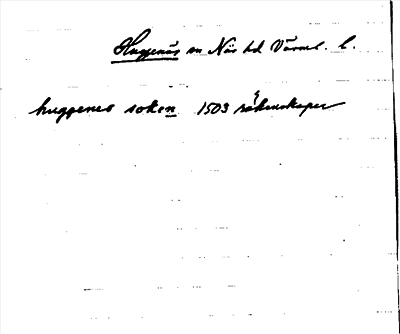 Huggenäs sn Näs hd Värml. l.
huggenes soken 1503 räkenskaper